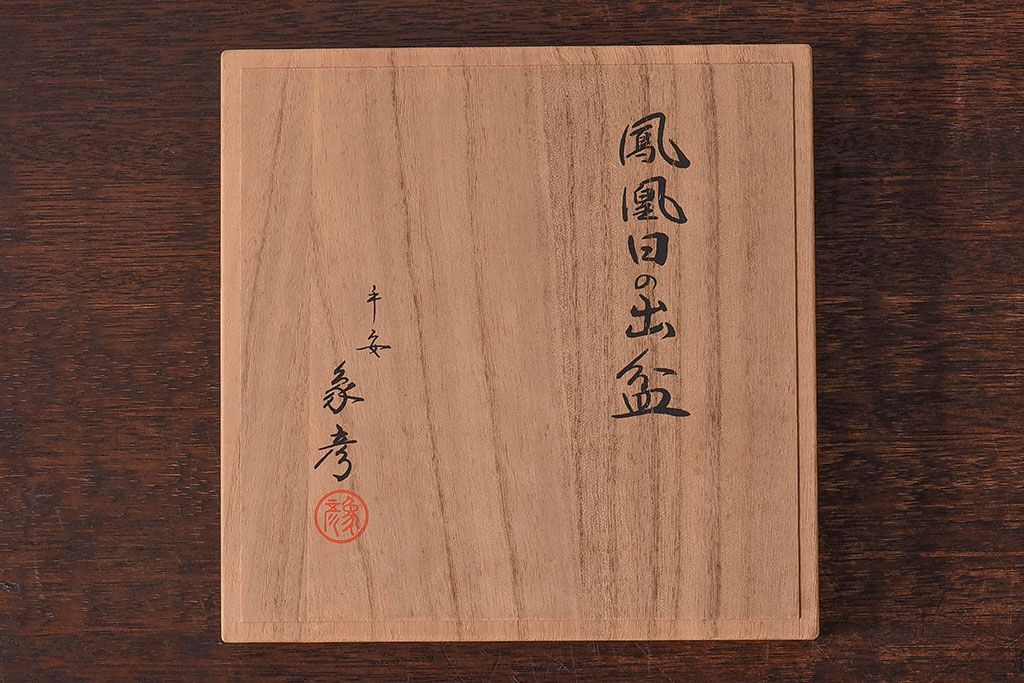 鳳凰日の出盆
平安
象彦
象彦